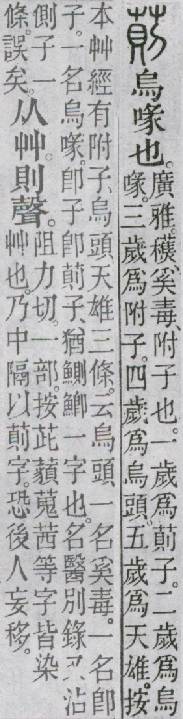 萴烏喙也。
廣雅。奚毒、附子也。一歲爲萴子。二歲爲烏
喙。三歲爲附子。四歲爲烏頭。五歲爲天雄。按
本艸經有附子、烏頭天雄三條。云烏頭一名奚毒。一名卽
子。一名烏喙。卽子卽萴子。猶鰂鯽一字也。名醫別錄又沾
側子一
條。誤矣。
从艸。則聲。
阻力切。一部。按茈藐蒐茜等字皆染
艸也。乃中隔以萴字。恐後人妄移。